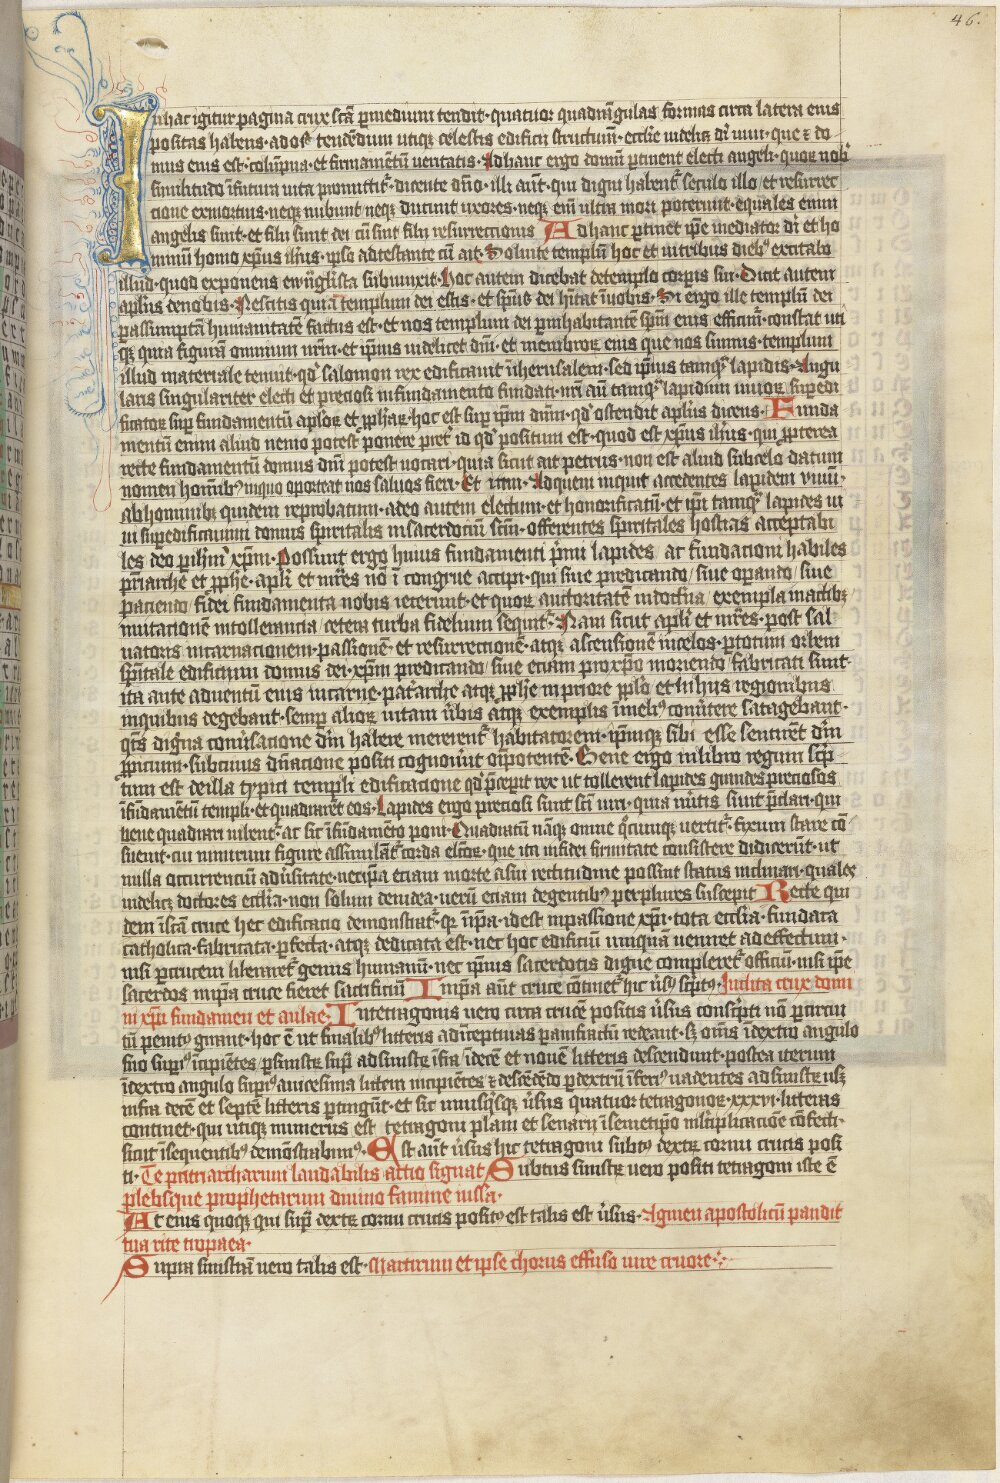 46.
In hac igitur pagina crux scā p medium tendit· quatuor quadrāgulas formas circa latera eius
positas habens· ad osn̄ tendēdum utiqz celestis edificii structurā· ecclīe videlicz dī vivi· que ⁊ do
mus eius est· colūpna· et firmamētū veritatis· Ad hanc ergo domū ptinent electi angeli· quoꝝ nob
similitudo ī futura vita promittit᷑· dicente dn̄o· illi aūt· qui digni habent᷑ seculo illo / et resurrec
cione ex mortuis· neqz nubunt neqz ducunt uxores· neqz enī ultra mori poterunt· equales enim
angelis sunt· et filii sunt dei cū sint filii resurrectionis Ad hanc ptinet ip̄e mediator dī et ho
minū homo xp̄us ih̄us· ipso adtestante cū ait· Solvite templū hoc et in tribus dieb᷒ excitabo
illud· quod exponens ewāglista subiunxit· Hoc autem dicebat de templo corpis sui· Dicit autem
aplūs de nobis· Nescitis quia templum dei estis· et sp̄us dei hītat ī vobis· Si ergo ille templū dei
p assumptā humanitatē factus est· et nos templum dei p inhabitantē sp̄m eius efficim᷑· constat uti
qz quia figurā omnium nr̄m· et ip̄sius videlicet dn̄i· et membroꝝ eius que nos sumus· templum
illud materiale tenuit· qd̄ salomon rex edificavit ī iherusalem· sed ip̄sius tamqꝫ lapidis· Angu
laris singulariter electi et preciosi in fundamento fundati· nr̄i aūt tamqꝫ lapidum vivoꝝ supedi
ficatoꝝ sup fundamentū aploꝝ et pphaꝝ· hoc est sup ip̄m dn̄m· qd̄ ostendit aplūs dicens· Funda
mentū enim aliud nemo potest ponere pret᷑ id qd̄ positum est· quod est xp̄us ih̄us· qui ppterea
recte fundamentū domus dn̄i potest vocari· quia sicut ait petrus· non est aliud sub celo datum
nomen homīb᷒ in quo oporteat nos salvos fieri· Et itm̄· Ad quem inquit accedentes lapidem vivū·
ab hominibz quidem reprobatum· a deo autem electum· et honorificatū· et ip̄i tamqꝫ lapides vi
vi supedificamini domus spiritalis in sacerdotiū scm̄· offerentes spiritales hostias acceptabi
les deo p ih̄m xp̄m· Possunt ergo huius fundamenti p̄mi lapides ac fundacioni habiles
p̄riarche et pphe· apli et mr̄es nō ī congrue accipi· qui sive predicando / sive opando / sive
paciendo / fidei fundamenta nobis iecerunt· et quoꝝ auctoritatē in doctrīa / exempla in actibz
imitacionem in tollerancia / cetera turba fidelium sequit᷑· Nam sicut apli et mr̄es· post sal
vatoris incarnacionem· passionē· et resurrectionē· atqz ascensionem in celos· p totum orbem
spiritale edificium domus dei· xp̄m predicando / sive etiam pro xp̄o moriendo / fabricati sunt·
ita ante adventū eius in carne· pat᷑arche atqz pphe in priore pplo et in hiis regionibus
in quibus degebant· semp alioꝝ vitam ūbis atqz exemplis ī meli᷒ cōūtere satagebant·
qt̄s digna conūsacione dn̄m habere mererent᷑ habitatorem· ip̄mqz sibi esse sentirēt dn̄m
ppicium· sub cuius dn̄acione positi cognovīut oīpotentē· Bene ergo in libro regum scp
tum est de illa typici templi edificacione qd̄ p̄cepit rex ut tollerent lapides grandes preciosos
ī fūdamentū templi· et quadrarēt eos· Lapides ergo preciosi sunt scī viri· quia ūtis sunt p̄clari· qui
bene quadrari iubent᷑· ac sic ī fūdamēto poni· Quadratū nāqz omne q̄cūqz vertit᷑· fixum stare cō
suevit· cui nimirum figure assimilāt᷑ corda elcōꝝ· que ita in fidei firmitate consistere didicerūt· ut
nulla occurrenciū adūsitate· nec ip̄a etiam morte a sui rectitudine possint status inclinari· quales
videlicz doctores ecclīa· non solum de iudea· verū etiam de gentib᷒ pplures suscepit Recte qui
dem ī scā cruce hec edificatio demonstrat᷑· qz n̄ ip̄a· id est in passione xp̄i· tota ecclīa· fundata
catholica· fabricata· pfecta· atqz dedicata est· nec hoc edificiū umquā veniret ad effectum·
nisi p crucem liberaret᷑ genus humanū· nec ip̄sius sacerdotis digne compleret᷑ officiū· nisi ip̄e
sacerdos in ip̄a cruce fieret sacrificiū In ip̄a aūt cruce cōtinet᷑ hic ūs᷒ scpt᷒· Inclita crux domi
ni xp̄i fundamen et aulae: In tetragonis vero circa crucē positis ūsus conscpti nō p circui
tū penit᷒ girant· hoc ē ut finalib᷒ litteris ad īceptivas p anfractū redeant· sz oms̄ ī dextro angulo
suo supi᷒ ī cipiētes / p sinistꝝ supi᷒ ad sinistꝝ īfra ī decē et novē litteris descendunt· postea iterum
ī dextro angulo supi᷒ a vicesima littera incipiētes ⁊ descēdēdo p dextrū īferi᷒ vadentes ad sinistꝝ usqz
infra decē et septē litteris ptingūt· et sic unusq̄sqz ūsus quatuor tetragonoꝝ· xxxvi· litteras
continet· qui utiqz numerus est tetragoni plani et senarii ī semetip̄o mltiplicacionē cōfecti·
sicut ī sequentib᷒ demōstrabim᷒· Est aūt ūsus hic tetragoni subt᷒ dextꝝ cornu crucis posi
ti· Te patriarcharum laudabilis actio signat Subtus sinistꝝ vero positi tetragoni iste ē
plebsque prophetarum divino famine iussa·
At eius quoqz qui supi᷒ dextꝝ cornu crucis posit᷒ est talis est ūsus· Agmen apostolicū pandit
tua rite tropaea·
Supra sinistrā vero talis est· Martirum et ipse chorus effuso iure cruore·:·